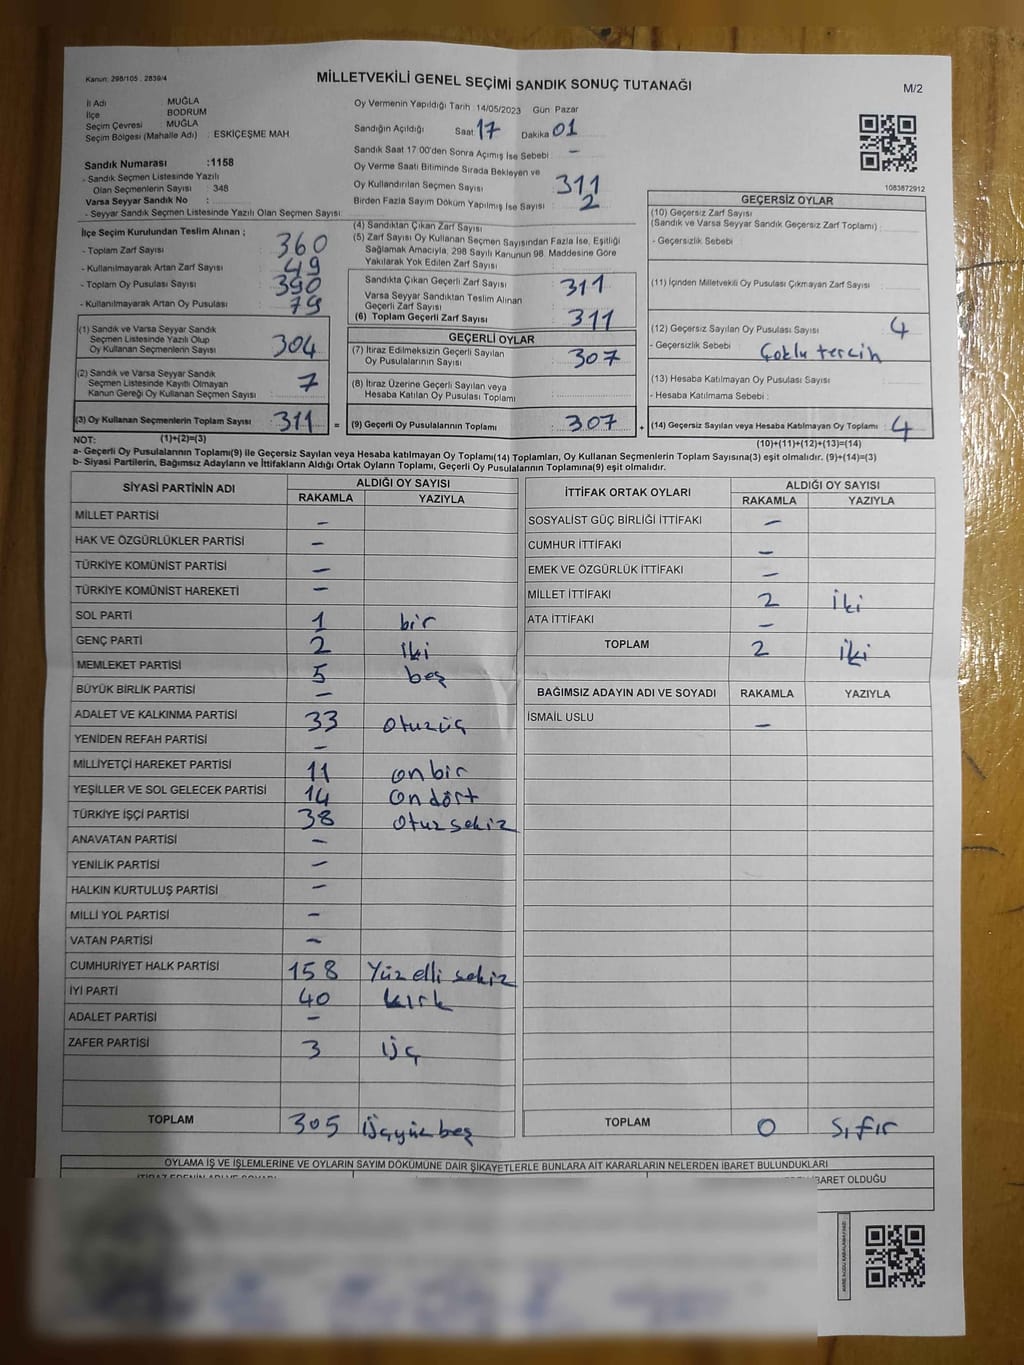 Kanun: 298/105 . 2839/4
MİLLETVEKİLİ GENEL SEÇİMİ SANDIK SONUÇ TUTANAĞI
M/2
İl Adı : MUĞLA
İlçe : BODRUM
Seçim Çevresi : MUĞLA
Seçim Bölgesi (Mahalle Adı) : ESKİÇEŞME MAH.
Sandık Numarası :1158
- Sandık Seçmen Listesinde Yazılı
Olan Seçmenlerin Sayısı : 348
Varsa Seyyar Sandık No :
- Seyyar Sandık Seçmen Listesinde Yazılı Olan Seçmen Sayısı:
Oy Vermenin Yapıldığı Tarih : 14/05/2023 Gün : Pazar
Sandığın Açıldığı Saat 17 Dakika 01
Sandık Saat 17:00'den Sonra Açımış İse Sebebi : –
Oy Verme Saati Bitiminde Sırada Bekleyen ve
Oy Kullandırılan Seçmen Sayısı 311
Birden Fazla Sayım Döküm Yapılmış İse Sayısı 2
1083872912
İlçe Seçim Kurulundan Teslim Alınan ;
- Toplam Zarf Sayısı : 360
- Kullanılmayarak Artan Zarf Sayısı : 49
- Toplam Oy Pusulası Sayısı : 390
- Kullanılmayarak Artan Oy Pusulası : 79
(1) Sandık ve Varsa Seyyar Sandık
Seçmen Listesinde Yazılı Olup
Oy Kullanan Seçmenlerin Sayısı : 304
(2) Sandık ve Varsa Seyyar Sandık
Seçmen Listesinde Kayıtlı Olmayan
Kanun Gereği Oy Kullanan Seçmen Sayısı : 7
(3) Oy Kullanan Seçmenlerin Toplam Sayısı : 311 =
(4) Sandıktan Çıkan Zarf Sayısı :
(5) Zarf Sayısı Oy Kullanan Seçmen Sayısından Fazla İse, Eşitliği
Sağlamak Amacıyla, 298 Sayılı Kanunun 98. Maddesine Göre
Yakılarak Yok Edilen Zarf Sayısı :
Sandıkta Çıkan Geçerli Zarf Sayısı : 311
Varsa Seyyar Sandıktan Teslim Alınan
Geçerli Zarf Sayısı :
(6) Toplam Geçerli Zarf Sayısı : 311
GEÇERLİ OYLAR
(7) İtiraz Edilmeksizin Geçerli Sayılan
Oy Pusulalarının Sayısı : 307
(8) İtiraz Üzerine Geçerli Sayılan veya
Hesaba Katılan Oy Pusulası Toplamı :
(9) Geçerli Oy Pusulalarının Toplamı : 307 +
GEÇERSİZ OYLAR
(10) Geçersiz Zarf Sayısı
(Sandık ve Varsa Seyyar Sandık Geçersiz Zarf Toplamı) :
- Geçersizlik Sebebi :
(11) İçinden Milletvekili Oy Pusulası Çıkmayan Zarf Sayısı :
(12) Geçersiz Sayılan Oy Pusulası Sayısı : 4
- Geçersizlik Sebebi : Çoklu tercih
(13) Hesaba Katılmayan Oy Pusulası Sayısı :
- Hesaba Katılmama Sebebi :
(14) Geçersiz Sayılan veya Hesaba Katılmayan Oy Toplamı : 4
NOT: (1)+(2)=(3)
(10)+(11)+(12)+(13)=(14)
a- Geçerli Oy Pusulalarının Toplamı(9) ile Geçersiz Sayılan veya Hesaba katılmayan Oy Toplamı(14) Toplamları, Oy Kullanan Seçmenlerin Toplam Sayısına(3) eşit olmalıdır. (9)+(14)=(3)
b- Siyasi Partilerin, Bağımsız Adayların ve İttifakların Aldığı Ortak Oyların Toplamı, Geçerli Oy Pusulalarının Toplamına(9) eşit olmalıdır.
SİYASİ PARTİNİN ADI ALDIĞI OY SAYISI
RAKAMLA YAZIYLA
MİLLET PARTİSİ –
HAK VE ÖZGÜRLÜKLER PARTİSİ –
TÜRKİYE KOMÜNİST PARTİSİ –
TÜRKİYE KOMÜNİST HAREKETİ –
SOL PARTİ 1 bir
GENÇ PARTİ 2 iki
MEMLEKET PARTİSİ 5 beş
BÜYÜK BİRLİK PARTİSİ –
ADALET VE KALKINMA PARTİSİ 33 otuzüç
YENİDEN REFAH PARTİSİ –
MİLLİYETÇİ HAREKET PARTİSİ 11 onbir
YEŞİLLER VE SOL GELECEK PARTİSİ 14 ondört
TÜRKİYE İŞÇİ PARTİSİ 38 otuzsekiz
ANAVATAN PARTİSİ –
YENİLİK PARTİSİ –
HALKIN KURTULUŞ PARTİSİ –
MİLLİ YOL PARTİSİ –
VATAN PARTİSİ –
CUMHURİYET HALK PARTİSİ 158 Yüz elli sekiz
İYİ PARTİ 40 kırk
ADALET PARTİSİ –
ZAFER PARTİSİ 3 üç
TOPLAM 305 üçyüz beş
İTTİFAK ORTAK OYLARI ALDIĞI OY SAYISI
RAKAMLA YAZIYLA
SOSYALİST GÜÇ BİRLİĞİ İTTİFAKI –
CUMHUR İTTİFAKI –
EMEK VE ÖZGÜRLÜK İTTİFAKI –
MİLLET İTTİFAKI 2 iki
ATA İTTİFAKI –
TOPLAM 2 iki
BAĞIMSIZ ADAYIN ADI VE SOYADI RAKAMLA YAZIYLA
İSMAİL USLU –
TOPLAM 0 Sıfır
OYLAMA İŞ VE İŞLEMLERİNE VE OYLARIN SAYIM DÖKÜMÜNE DAİR ŞİKAYETLERLE BUNLARA AİT KARARLARIN NELERDEN İBARET BULUNDUKLARI
İBARET OLDUĞU